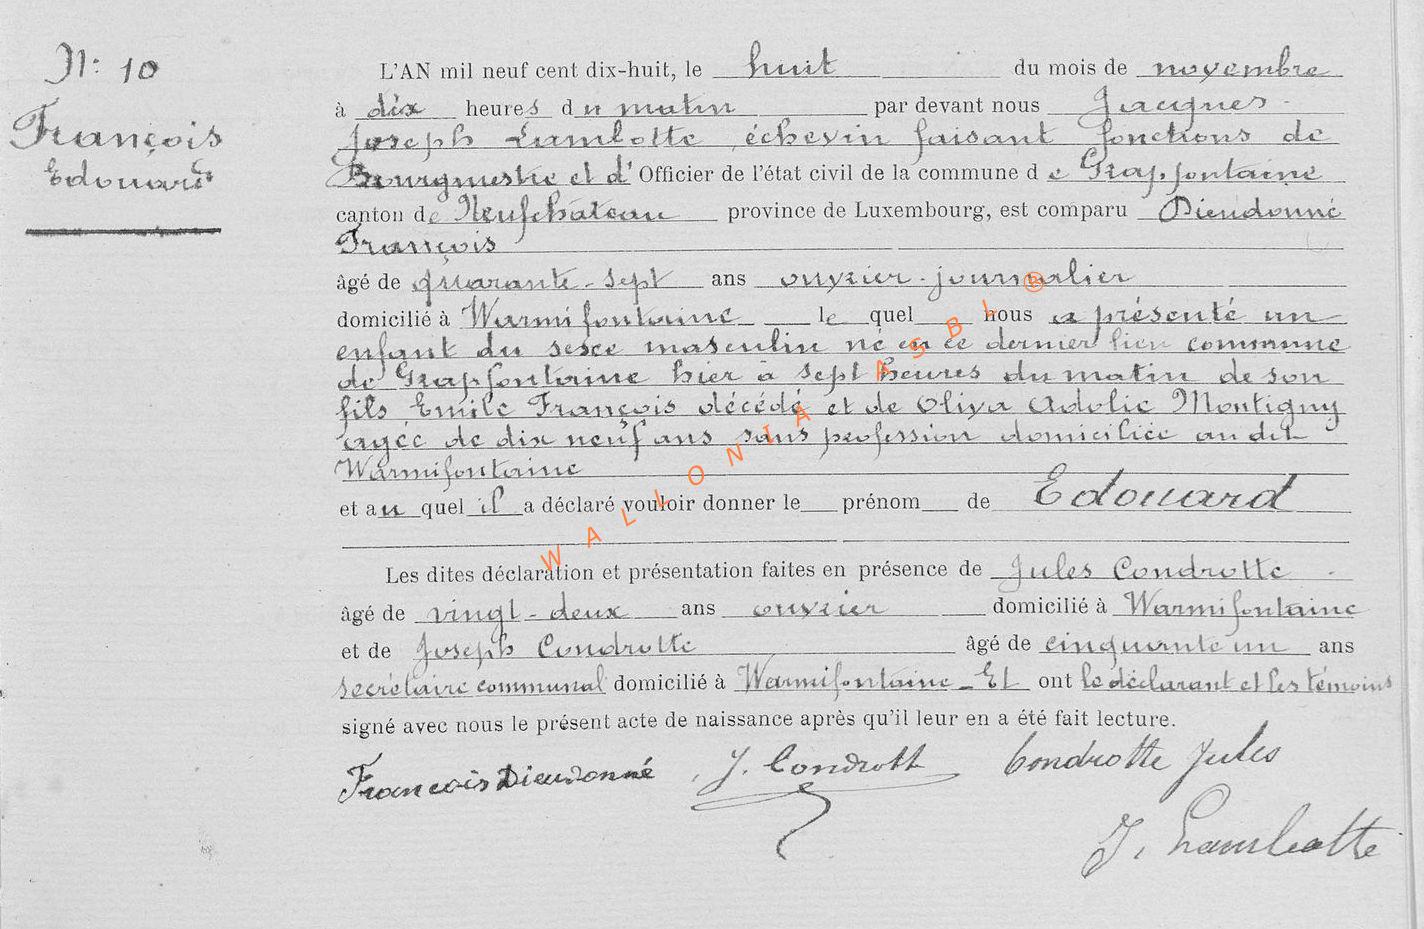 N: 10
François
Edouard
L'AN mil neuf cent dix-huit, le huit du mois de novembre
à dix heures du matin par devant nous Jacques
Joseph Lambotte échevin faisant fonctions de
Bourgmestre et d'Officier de l'état civil de la commune de Grapfontaine
canton de Neufchâteau province de Luxembourg, est comparu Dieudonné
François
âgé de quarante-sept ans ouvrier-journalier
domicilié à Warmifontaine lequel nous a présenté un
enfant du sexe masculin né en ce dernier lieu commune
de Grapfontaine hier à sept heures du matin de son
fils Emile François décédé et de Oliva Adolie Montigny
agée de dix neuf ans sans profession domiciliée au dit
Warmifontaine
et au quel il a déclaré vouloir donner le prénom de Edouard
Les dites déclaration et présentation faites en présence de Jules Condrotte
âgé de vingt-deux ans ouvrier domicilié à Warmifontaine
et de Joseph Condrotte âgé de cinquante un ans
secrétaire communal domicilié à Warmifontaine - Et ont le déclarant et les témoins
signé avec nous le présent acte de naissance après qu'il leur en a été fait lecture.
François Dieudonné J. Condrott Condrotte Jules
J. Lambotte
WALLONIA ASBL ®